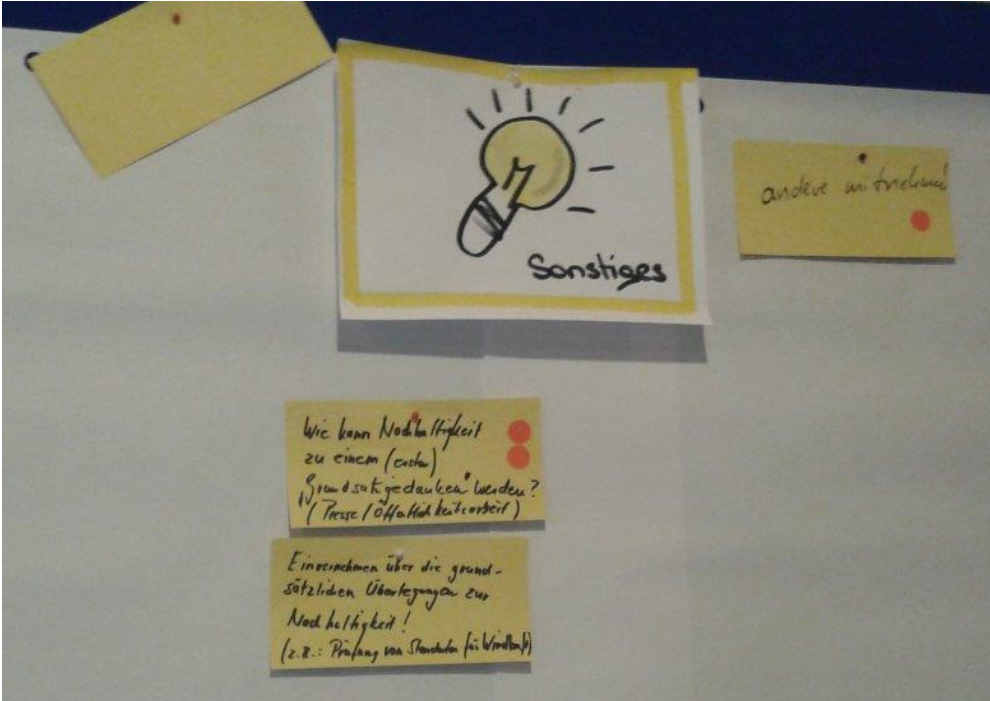 Sonstiges
andere mitnehmen
Wie kann Nachhaltigkeit
zu einem (ersten)
„Grundsatzgedanken" werden?
(Presse/Öffentlichkeitsarbeit)
Einvernehmen über die grund-
sätzlichen Überlegungen zur
Nachhaltigkeit!
(z.B.: Prüfung von Standorten für Windkraft)